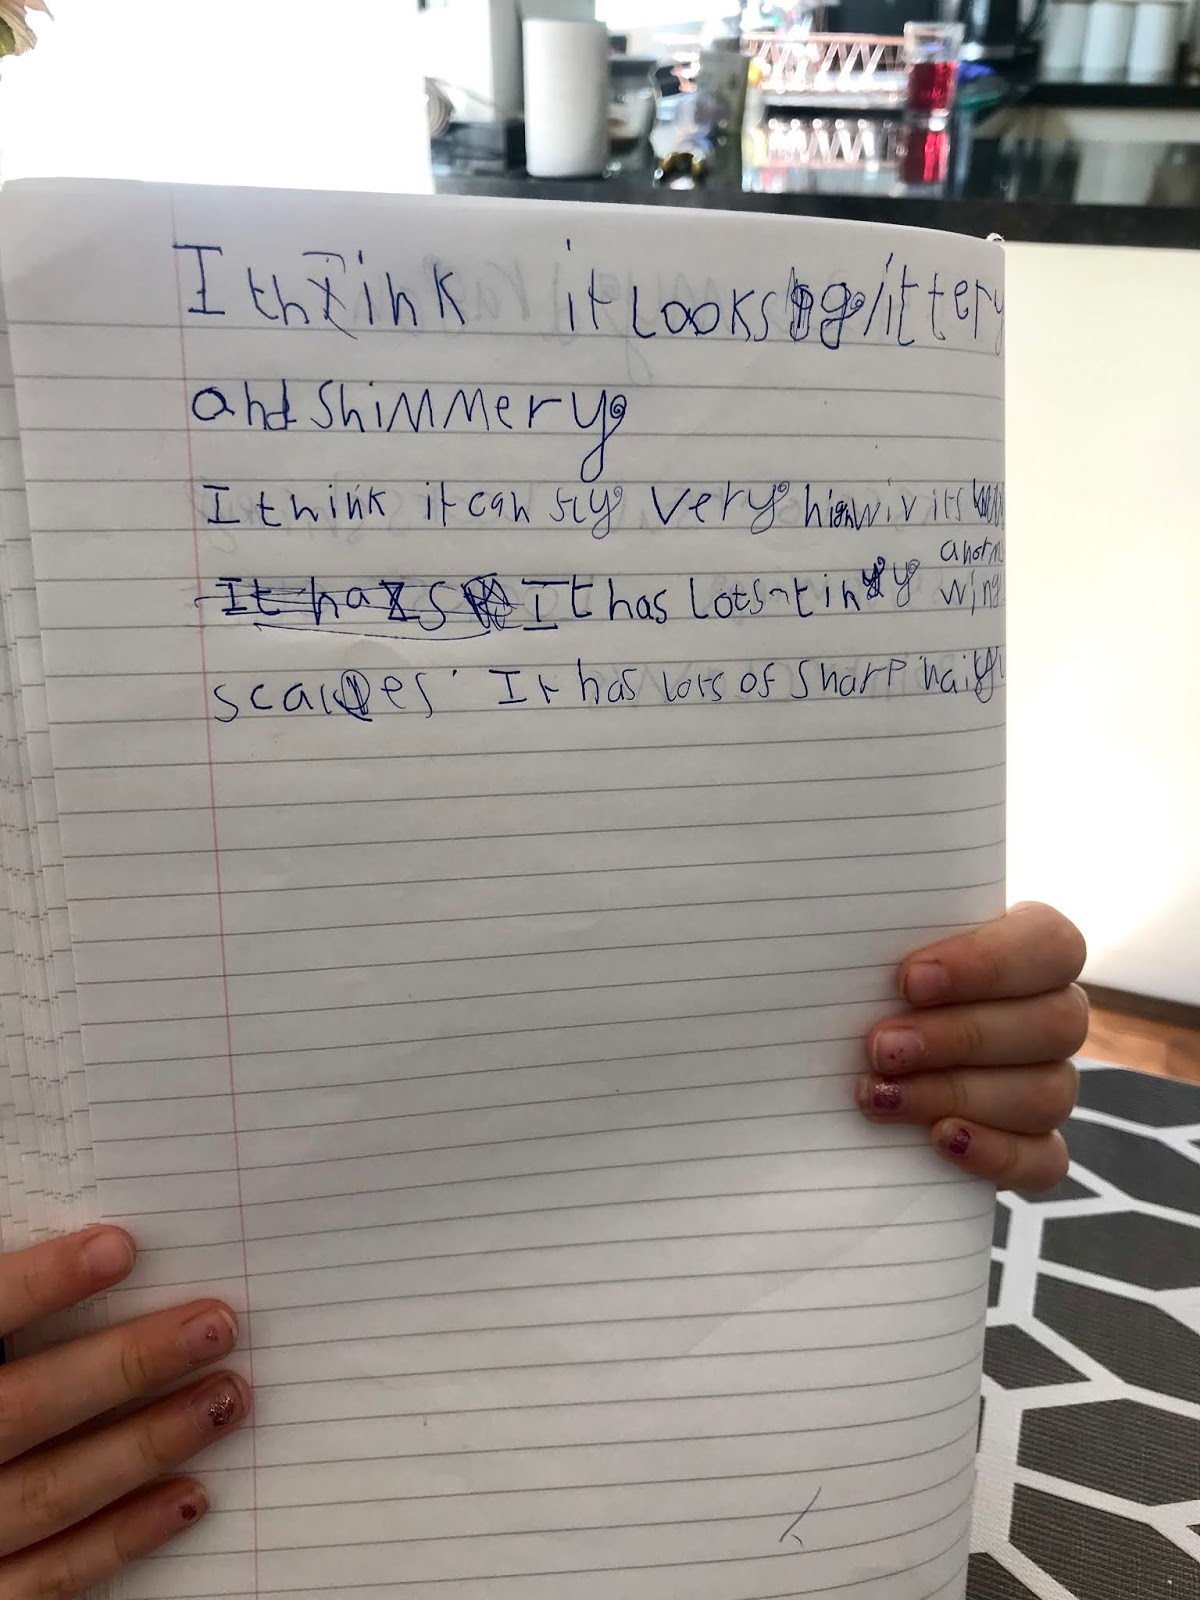 I think it Looks glittery
and shimmery
I think it can fly very high wiv its
anorm
It has It has lots tinyy wing
scales. It has lots of sharp